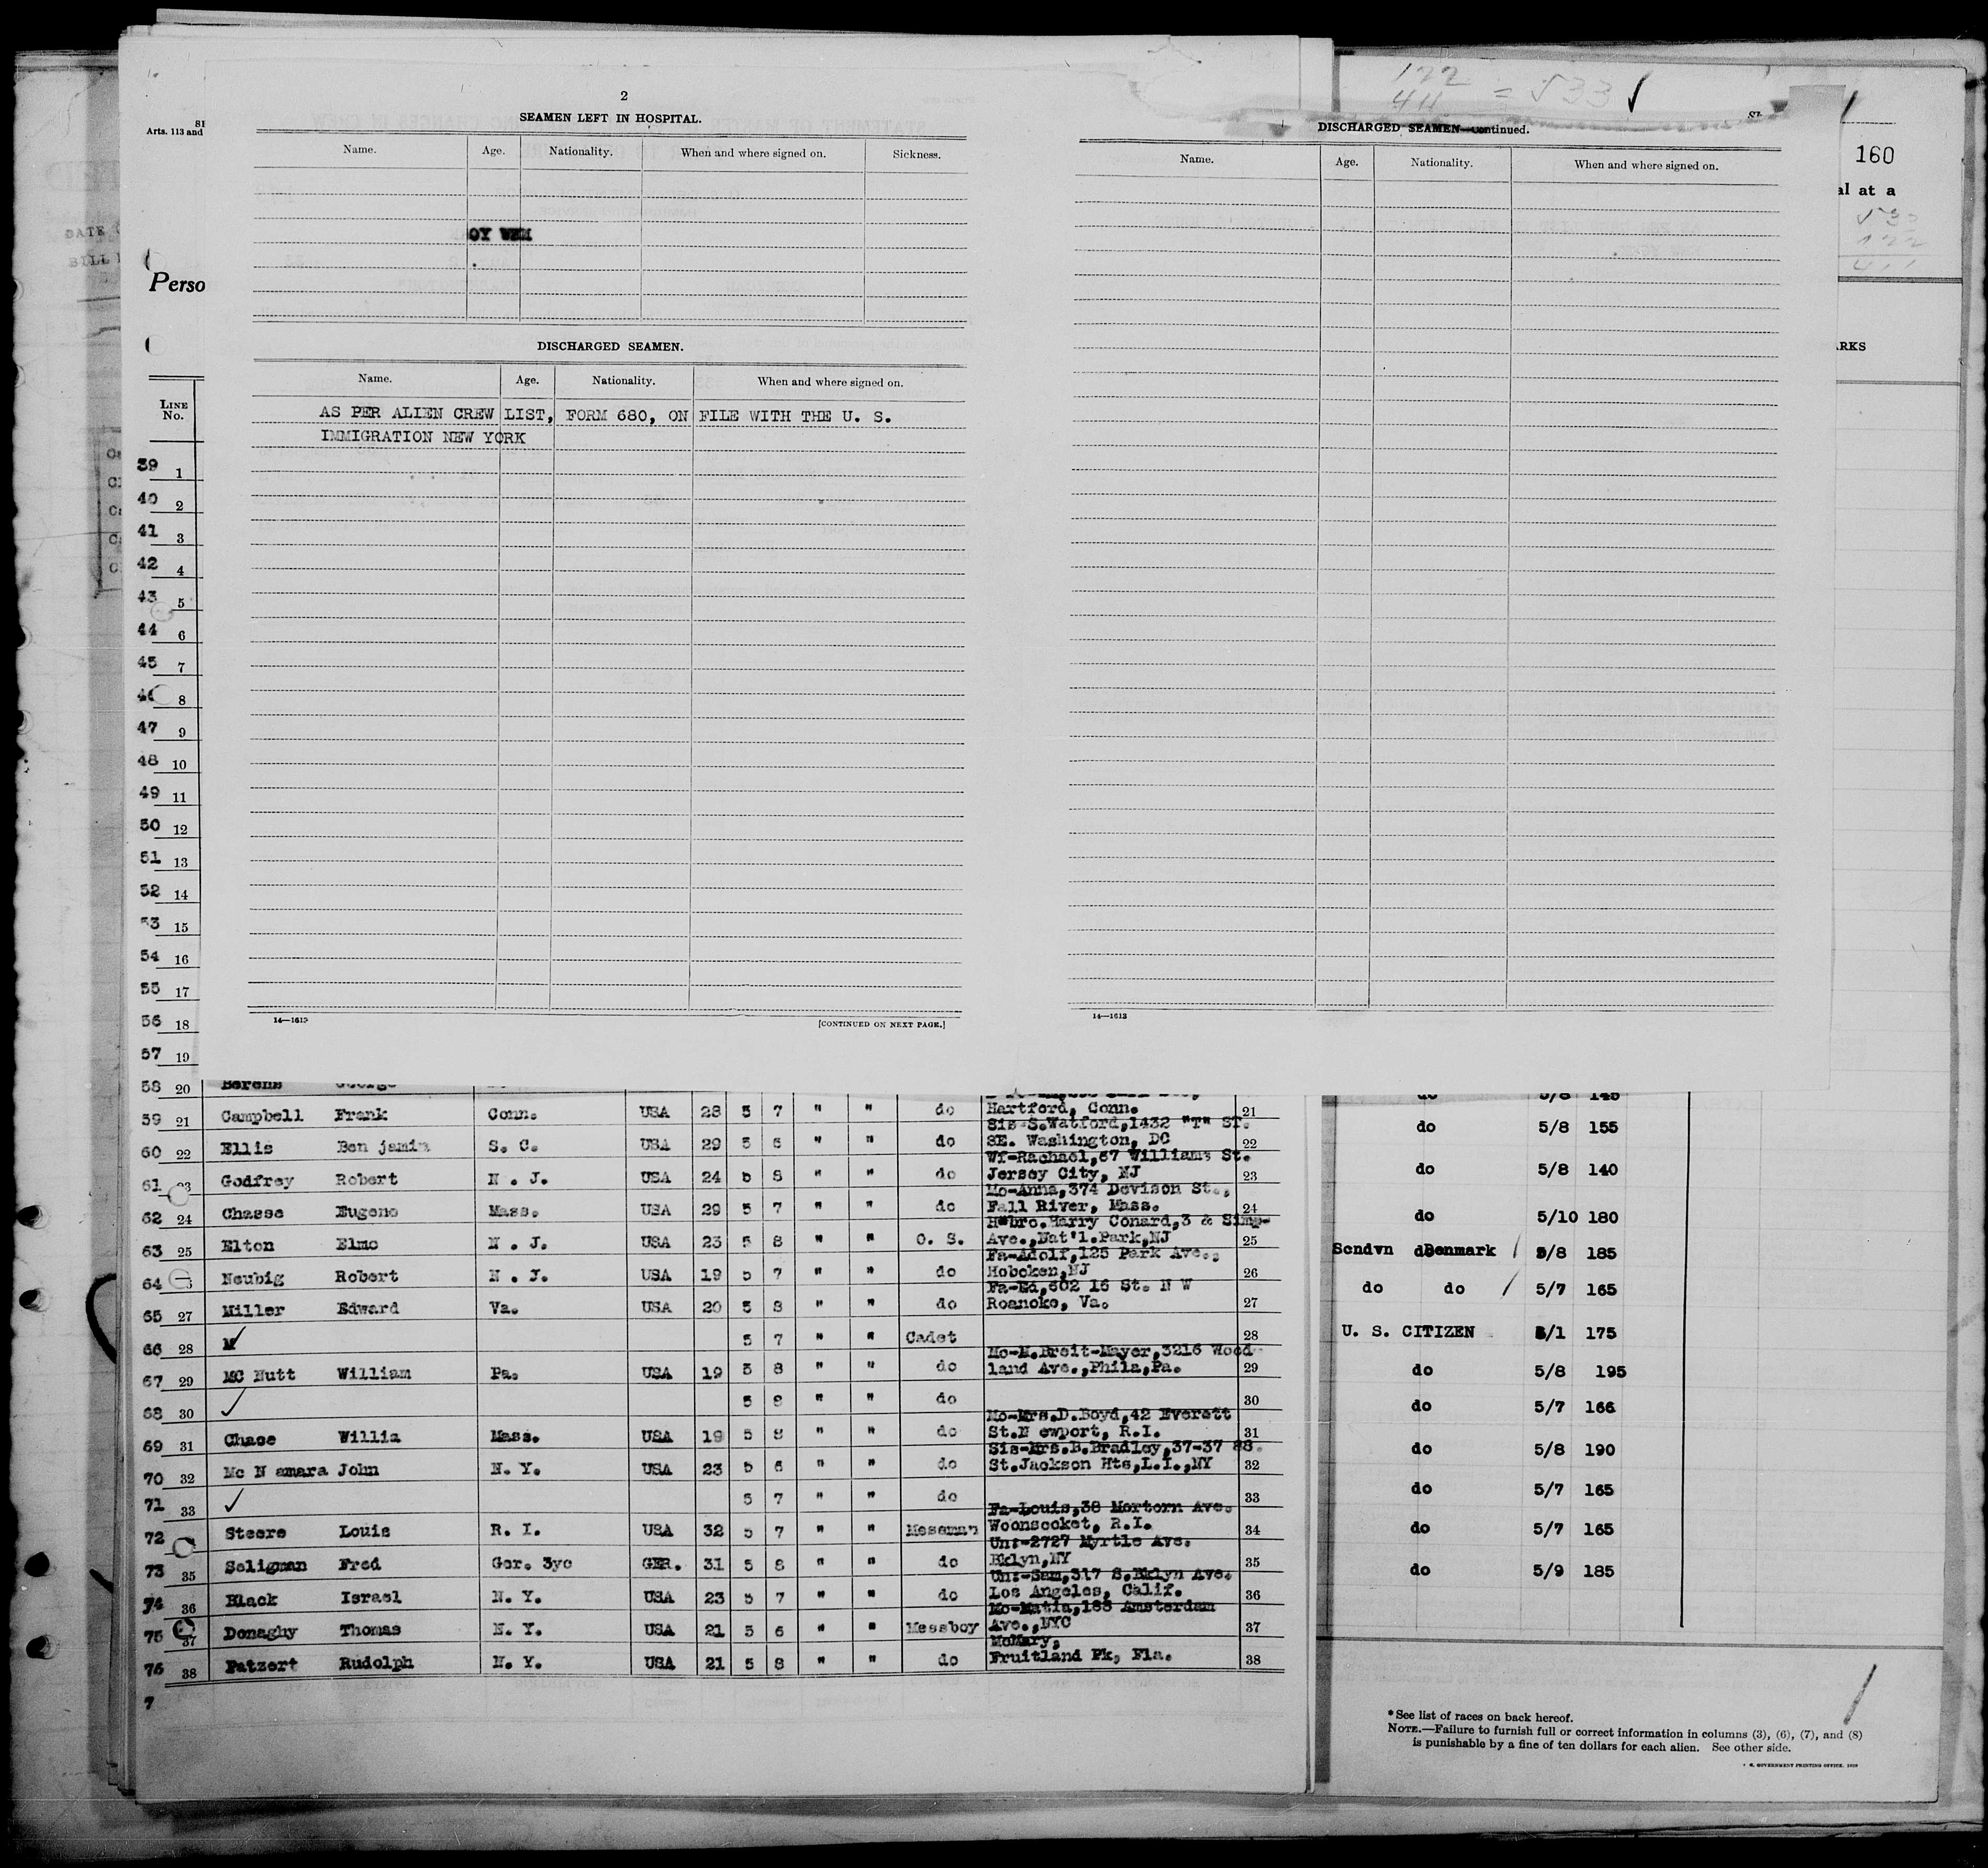 2
SEAMEN LEFT IN HOSPITAL.
Name. Age. Nationality. When and where signed on. Sickness.
DISCHARGED SEAMEN.
Name. Age. Nationality. When and where signed on.
AS PER ALIEN CREW LIST, FORM 680, ON FILE WITH THE U. S.
IMMIGRATION NEW YORK
14—1613
[CONTINUED ON NEXT PAGE.]
122
411 = 533
DISCHARGED SEAMEN—Continued.
Name. Age. Nationality. When and where signed on.
14—1613
160
al at a
533
122
411
ARKS
Arts. 113 and
Perso
LINE
No.
39 1
40 2
41 3
42 4
43 5
44 6
45 7
8
47 9
48 10
49 11
50 12
51 13
52 14
53 15
54 16
55 17
56 18
57 19
58 20 Berens George
59 21 Campbell Frank Conn. USA 28 5 7 " " do Hartford, Conn. 21
Sis-S.Watford,1432 "T" ST.
60 22 Ellis Ben jamin S. C. USA 29 5 6 " " do SE. Washington, DC 22
Wf-Rachael,67 Williams St.
61 23 Godfrey Robert N . J. USA 24 5 8 " " do Jersey City, NJ 23
Mo-Anna,374 Devison St.,
62 24 Chasse Eugene Mass. USA 29 5 7 " " do Fall River, Mass. 24
H*bro.Harry Conard,3 & Simp-
63 25 Elton Elmo N . J. USA 23 5 8 " " O. S. Ave.,Nat'l.Park,NJ 25
Fa-Adolf,125 Park Ave.,
64 Neubig Robert N . J. USA 19 5 7 " " do Hoboken,NJ 26
Fa-Ed,602 16 St. N W
65 27 Miller Edward Va. USA 20 5 8 " " do Roanoke, Va. 27
66 28 M 5 7 " " Cadet 28
Mo-M.Breit-Mayer,3216 Wood-
67 29 MC Nutt William Pa. USA 19 5 8 " " do land Ave.,Phila,Pa. 29
68 30 5 8 " " do 30
Mo-Mrs.D.Boyd,42 Everett
69 31 Chace Willia Mass. USA 19 5 8 " " do St.N ewport, R.I. 31
Sis-Mrs.B.Bradley,37-37 88.
70 32 Mc N amara John N. Y. USA 23 5 6 " " do St.Jackson Hts,L.I.,NY 32
71 33 5 7 " " do 33
Fa-Louis,38 Mortorn Ave.
72 Steere Louis R. I. USA 32 5 7 " " Messman Woonsocket, R.I. 34
Un:-2727 Myrtle Ave.
73 35 Seligman Fred Ger. 3yo GER. 31 5 8 " " do Bklyn,NY 35
Un:-Sam,317 S.Bklyn Ave.
74 36 Black Israel N. Y. USA 23 5 7 " " do Los Angeles, Calif. 36
Mo-Matia,188 Amsterdam
75 37 Donaghy Thomas N. Y. USA 21 5 6 " " Messboy Ave.,NYC 37
MoMary,
76 38 Patzert Rudolph N. Y. USA 21 5 8 " " do Fruitland Pk, Fla. 38
7
do 5/8 145
do 5/8 155
do 5/8 140
do 5/10 180
Scndvn Denmark 5/8 185
do do 5/7 165
U. S. CITIZEN 5/1 175
do 5/8 195
do 5/7 166
do 5/8 190
do 5/7 165
do 5/7 165
do 5/9 185
* See list of races on back hereof.
NOTE.—Failure to furnish full or correct information in columns (3), (6), (7), and (8)
is punishable by a fine of ten dollars for each alien. See other side.
GOVERNMENT PRINTING OFFICE.